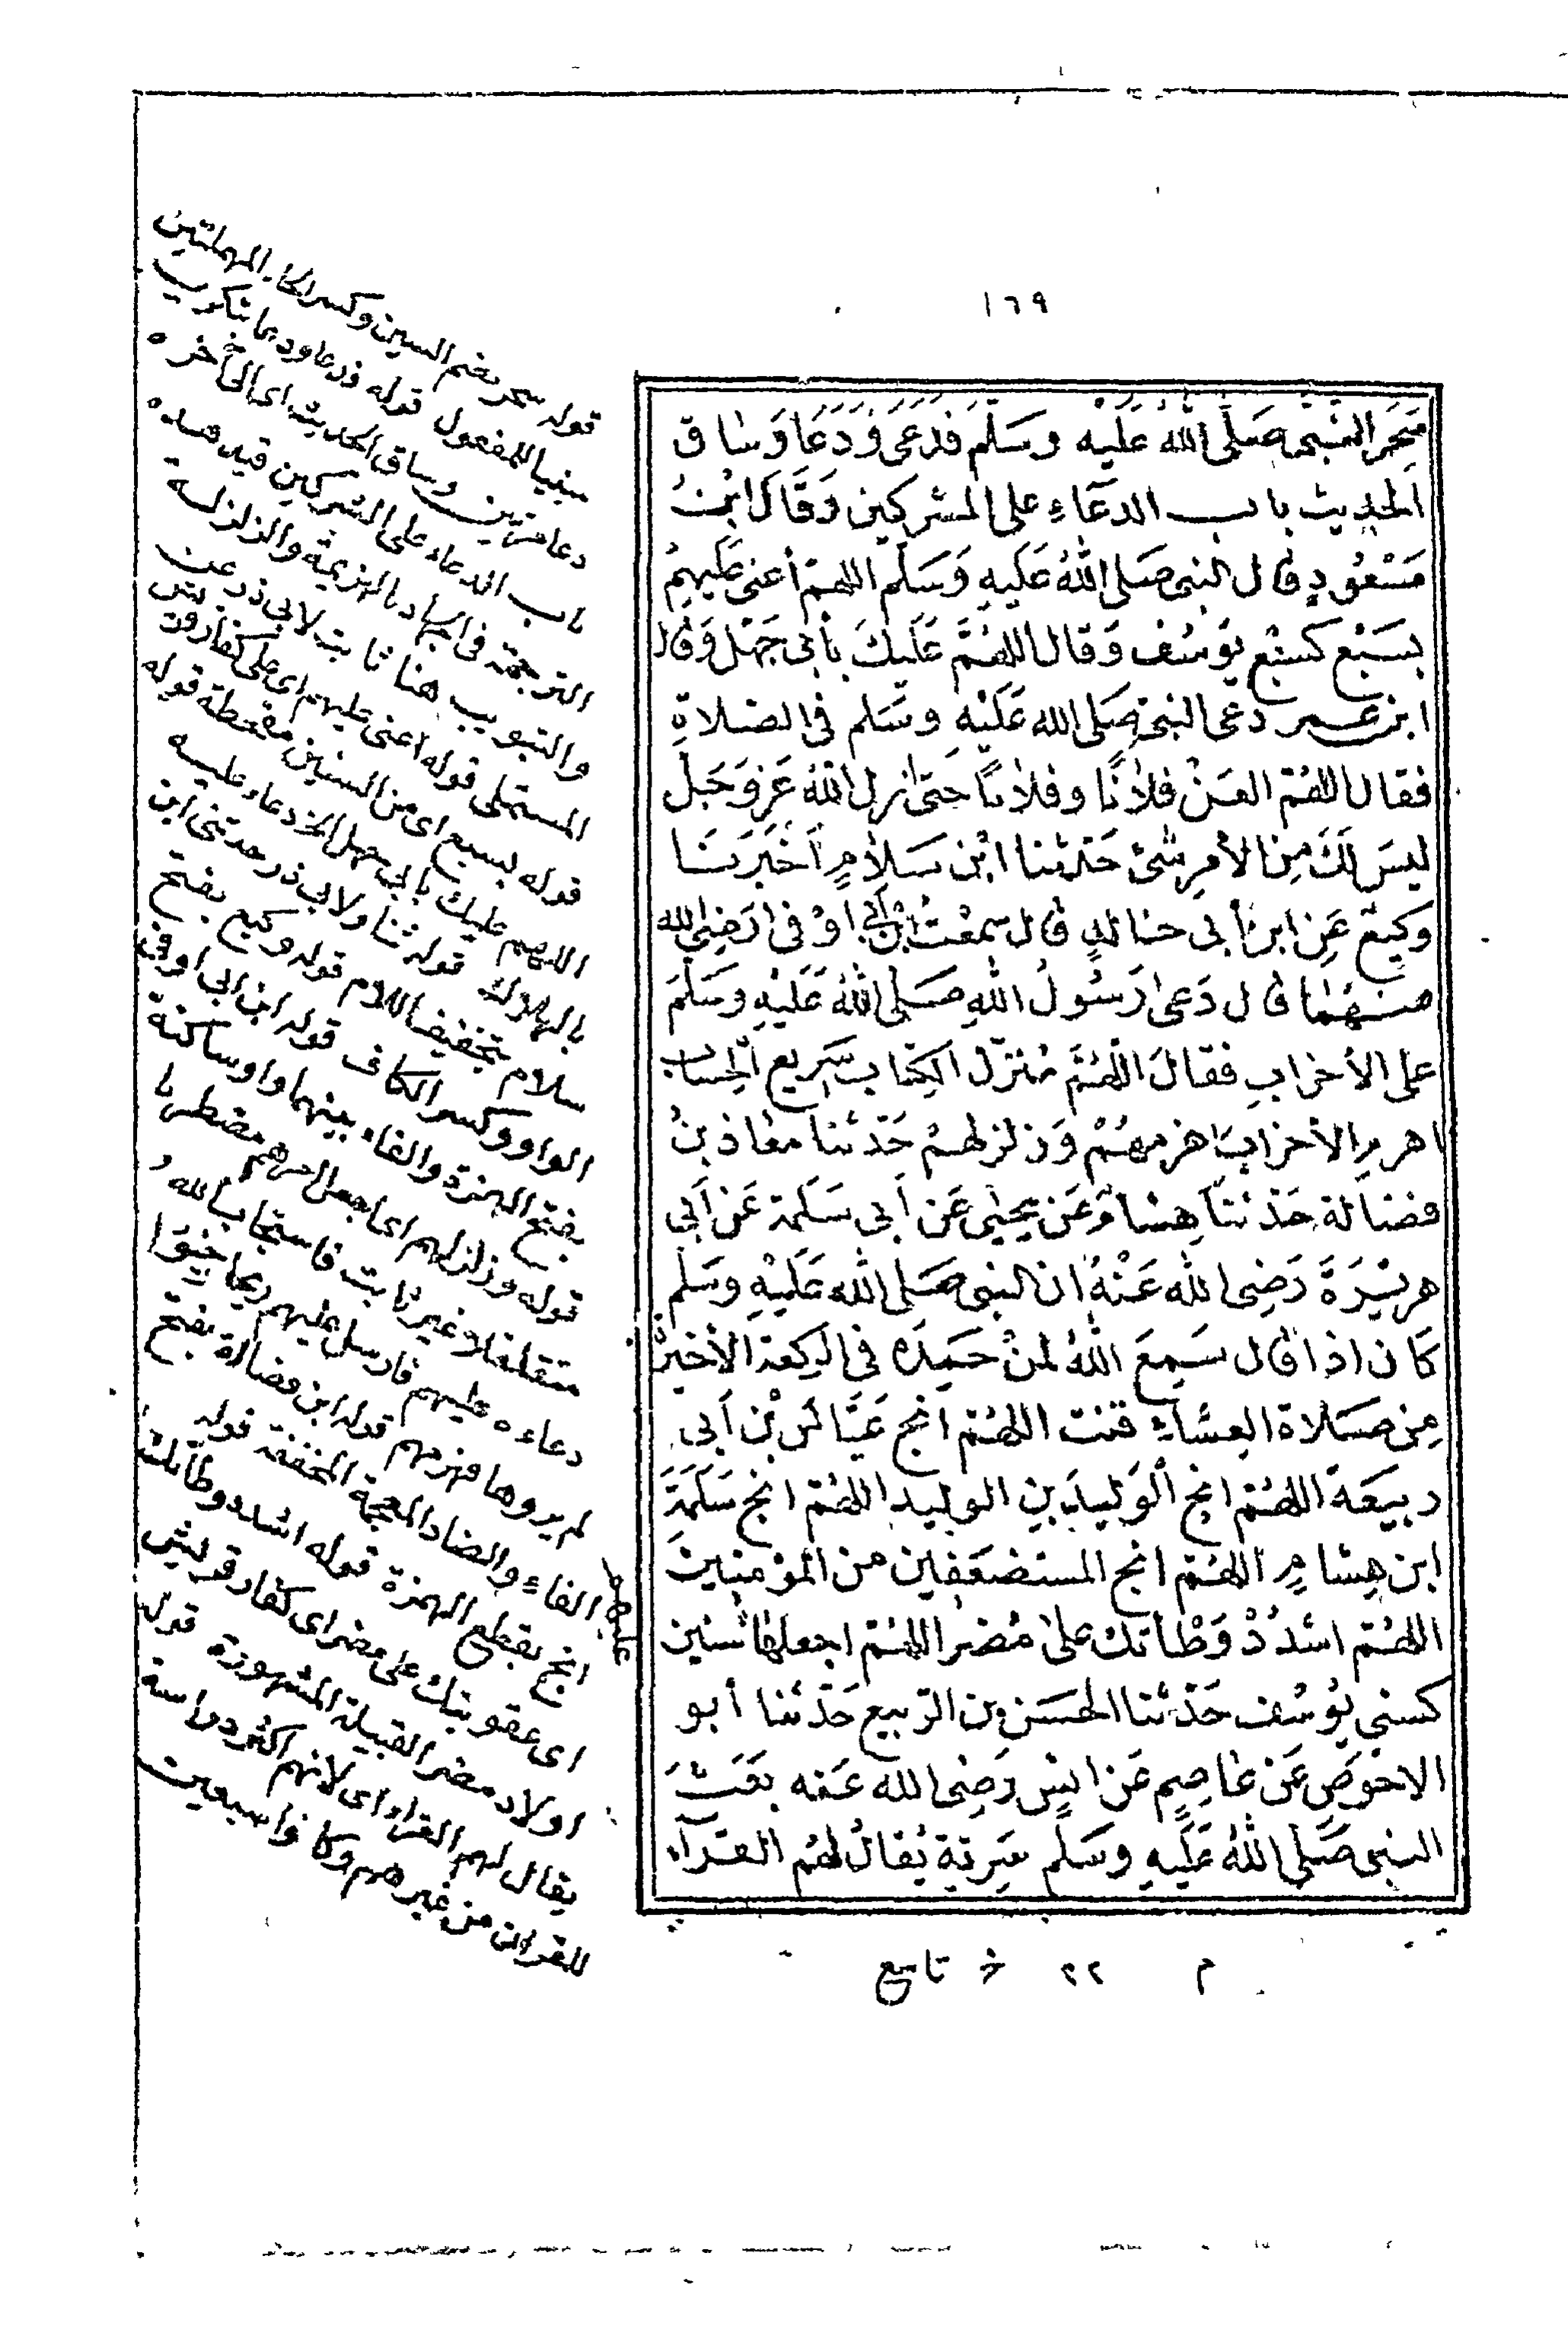 ١٦٩
سُحِرَ النَّبِيُّ صَلَّى اللَّهُ عَلَيْهِ وَسَلَّمَ فَدَعَى وَدَعَا وَسَاقَ
الحديث باب الدعاءِ على المشركين وَقَالَ ابْنُ
مَسْعُودٍ قال النبي صَلى اللهُ عَلَيهِ وَسَلَّم اللهمّ أعني عَلَيهِمْ
بسَبْعٍ كسَبْعِ يوسُف وَقال اللهُمَّ عَلَيكَ بأبي جَهْل وَقال
ابن عمر دعى النبي صَلى الله عَلَيْهِ وسَلم في الصلاةِ
فقال اللهُمّ العَنْ فلانًا وفلانًا حتى أنزل اللهُ عَز وَجَل
ليسَ لَكَ مِنَ الأمرِ شئ حَدثنا ابْن سَلَامٍ أَخْبَرَنَا
وَكيعٌ عَنِ ابن أبي خالدٍ قال سمعْتُ ابْنَ أَبِي أوْفى رَضِيَ الله
عنهُمَا قال دَعى رَسُولُ اللهِ صَلى اللهُ عَلَيْهِ وسَلَّمَ
على الأحزابِ فقالَ اللَّهُمَّ مُنزلَ الكِتابِ سَرِيع الحِسَاب
اهزمِ الأحزابَ اهزمهُمْ وَزلزلهمْ حَدثنا معاذ بنُ
فضالة حَدثنا هِشامٌ عَن يحيى عَن أبي سَلَمة عَن أَبي
هريْرَةَ رَضِيَ الله عَنْهُ ان النبي صَلى الله عَلَيْهِ وسَلم
كَان اذا قال سَمِعَ اللهُ لمنْ حَمِدَه في الركعة الأخيرة
مِن صَلاة العِشاءِ قنت اللهُمّ انج عَيَّاشَ بْن أبي
ربيعَة اللهُمّ انج الوَليدَ بن الوليد اللهُمّ انج سَلَمَةَ
ابن هِشامٍ اللهُمّ انج المستضعَفين من المؤمنِينَ
اللهُمّ اشدُدْ وَطْأتك على مُضر اللهُمّ اجعلها سنين
كسني يُوسُف حَدّثنا الحسَن بن الرّبيع حَدّثنا أبو
الاحْوَصِ عَن عاصِمٍ عَن انَسٍ رَضِيَ الله عَنه بَعَثَ
النبي صَلَّى اللهُ عَلَيهِ وسَلم سَرِيّة يُقالُ لهُم القرّآء
م ٢٢ خ تاسع
قوله سحر بضم السين وكسر الحاء المهملتين
مبنيا للمفعول قوله فدعا ودعا بتكرير
دعا مرتين وساق الحديث اى الى آخره
باب الدعاء على المشركين قيد هذه
الترجمة في الجهاد بالهزيمة والزلزلة
والتبويب هنا ثابت لابي ذر عن
المستملى قوله اعنى عليهم اى على كفار قريش
قوله بسبع اى من السنين مقحطة قوله
اللهم عليك بابى جهل الخ دعاء عليه
بالهلاك قوله ثنا ولابي ذر حدثنى ابن
سلام بتخفيف اللام قوله وكيع بفتح
الواو وكسر الكاف قوله ابن ابى اوفى
بفتح الهمزة والفاء بينهما واو ساكنة
قوله وزلزلهم اى اجعل امرهم مضطربا
متقلقلا غير ثابت فاستجاب الله
دعاءه عليهم فارسل عليهم ريحا وجنودا
لم يروها فهزمهم قوله ابن فضالة بفتح
الفاء والضاد المعجمة المخففة قوله
انج بقطع الهمزة قوله اشدد وطأتك
اى عقوبتك على مضر اى كفار قريش
اولاد مضر القبيلة المشهورة قوله
يقال لهم القراء اى لانهم اكثر دراسة
للقرآن من غيرهم وكانوا سبعين